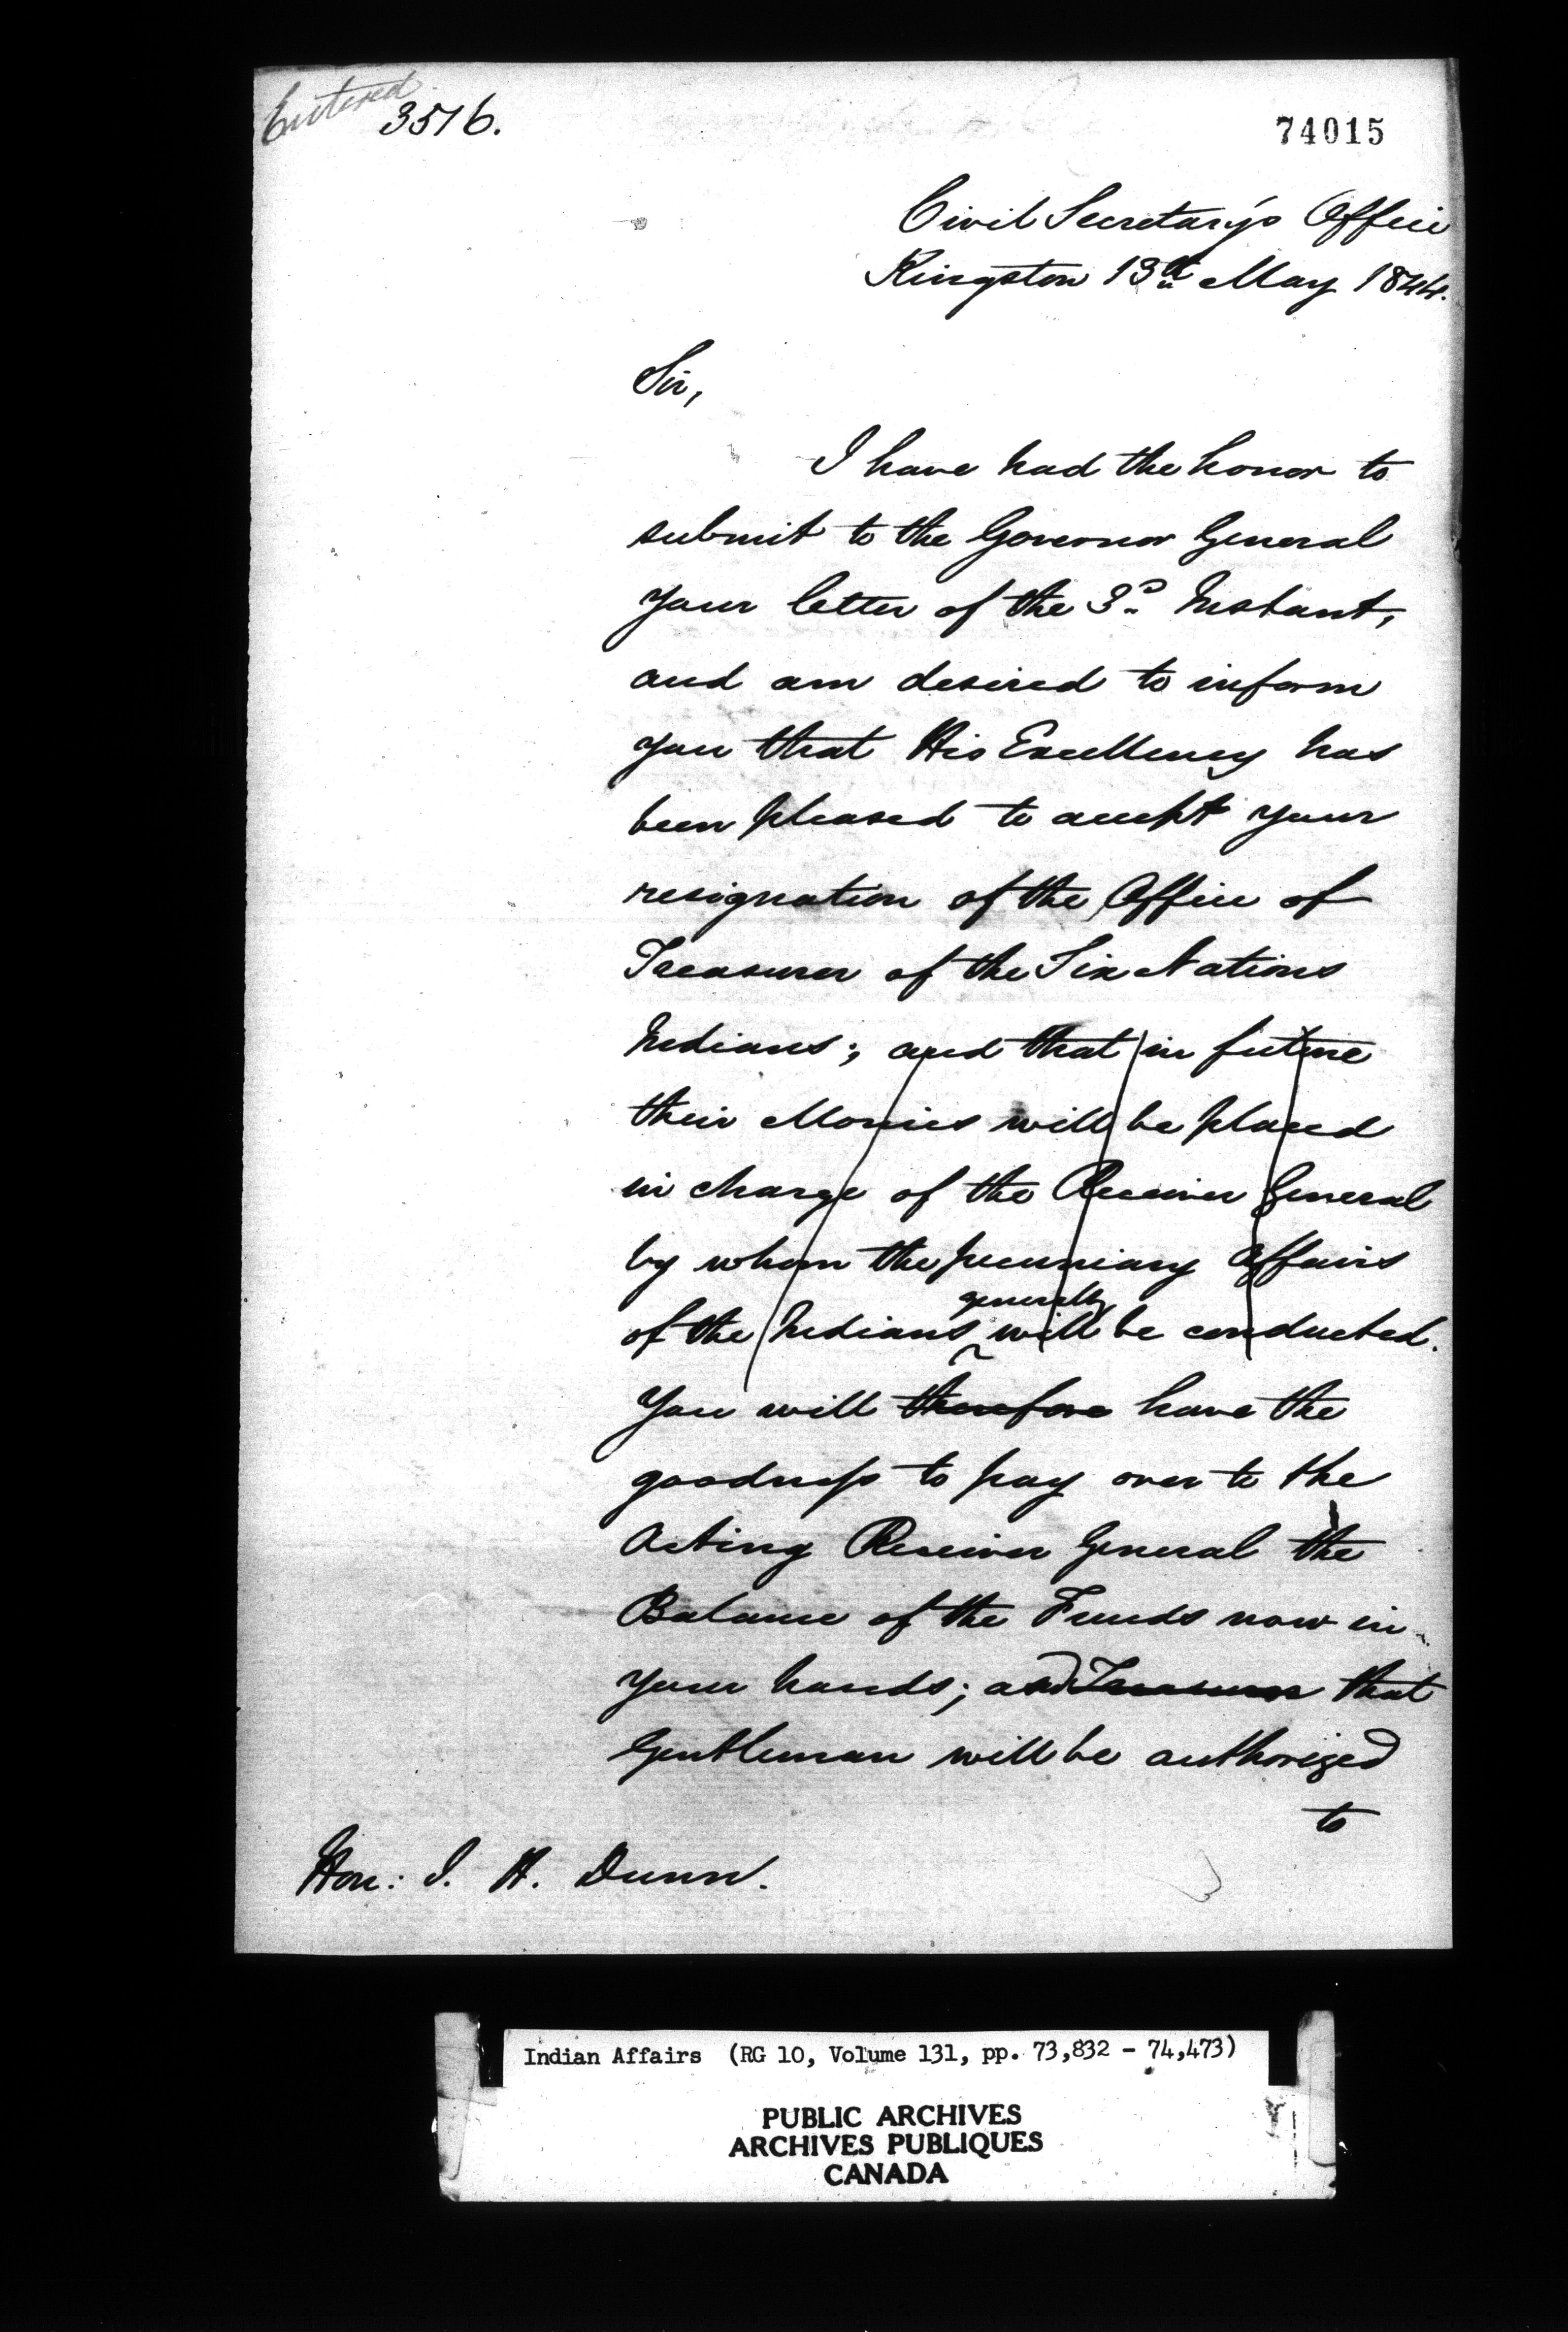 Entered
3516.
74015
Civil Secretary's Office
Kingston 13th May 1844.
Sir,
I have had the honor to
submit to the Governor General
your letter of the 3d Instant,
and am desired to inform
you that His Excellency has
been pleased to accept your
resignation of the Office of
Treasurer of the Six Nations
Indians; and that in future
their Monies will be placed
in charge of the Receiver General
by whom the pecuniary Affairs
generally
of the Indians will be conducted.
You will therefore have the
goodness to pay over to the
Acting Receiver General the
Balance of the Funds now in
your hands; and that
Gentleman will be authorized
to
Hon: J. H. Dunn.
Indian Affairs (RG 10, Volume 131, pp. 73,832 - 74,473)
PUBLIC ARCHIVES
ARCHIVES PUBLIQUES
CANADA